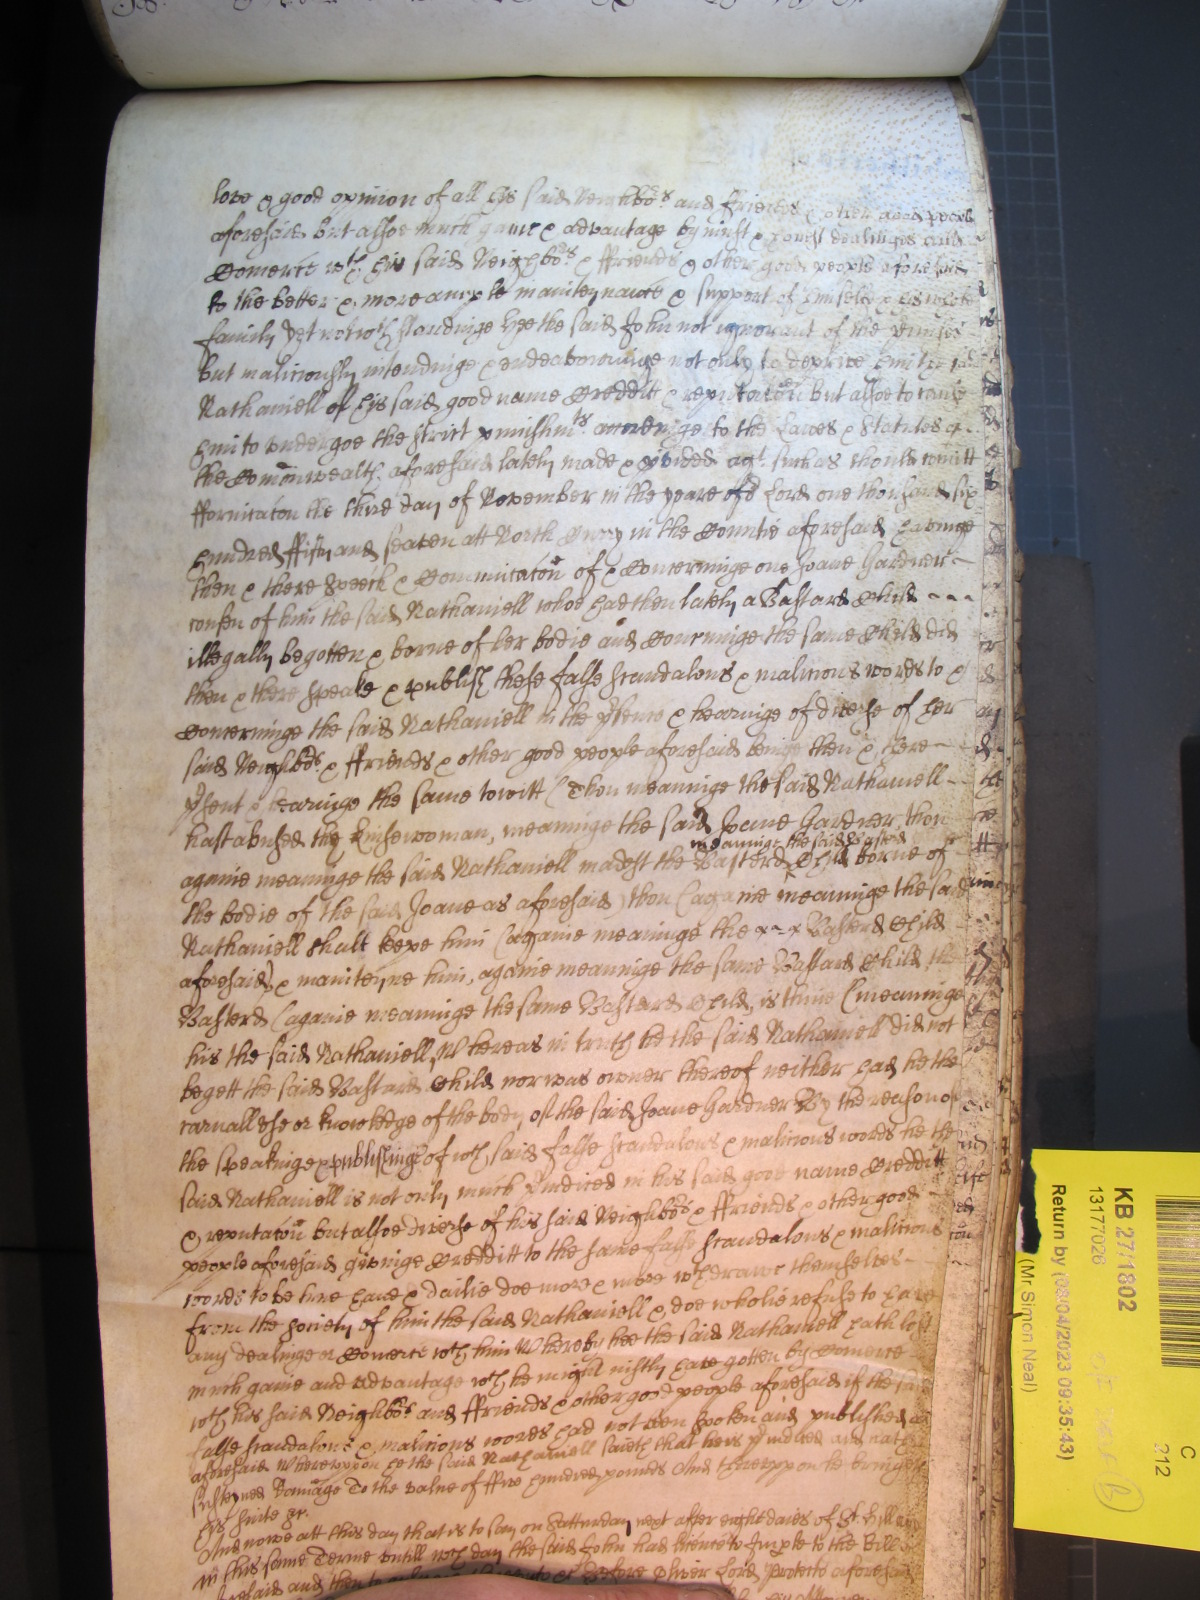 love & good opinion of all his said Neighbors and ffriends & other good people
aforesaid But alsoe much gaine & advantage by iust & honest dealinges and
Comerce wth his said Neighbors & ffriends & other good people aforesaid
to the better & more ample mainteynance & support of himselfe & his whole
family Yet notwthstandinge hee the said John not ignorant of the p'misses
but maliciously intendinge & endeavouringe not only to deprive him the said
Nathaniell of his said good name Creditt & reputacon But alsoe to cause
him to undergoe the strict punishmts accordinge to the Lawes & Statutes of
the Comonwealth aforesaid lately made & p'vided agt such as should comitt
ffornicacon the third day of November in the yeare of or Lord one thousand six
hundred ffifty and seaven att North Curry in the Countie aforesaid havinge
then & there Speech & Comunicacon of & Concerninge one Joane Gardner
cosen of him the said Nathaniell whoe had then lately a Bastard Child
illegally begotten & borne of her bodie and Concerninge the same Child did
then & there speake & publish these false scandalous & malicious words to &
Concerninge the said Nathaniell in the p'sence & hearinge of diverse of her
said Neighbors & ffriends & other good people aforesaid beinge then & there
p'sent & hearinge the same towitt (Thou meaninge the said Nathaniell
hast abused thy kinsewoman, meaninge the said Joane Gardner, thou
meaninge the said Basterd
againe meaninge the said Nathaniell madest the Basterd Child borne of
the bodie of the said Joane as aforesaid) thou (againe meaninge the said
Nathaniell shalt keepe him (againe meaninge the Basterd Child
aforesaid) & mainteyne him, againe meaninge the same Bastard Child, the
Basterd (againe meaninge the same Bastard Child, is thine (meaninge
his the said Nathaniell, Whereas in truth he the said Nathaniell did not
begett the said Bastard Child nor was owner thereof neither had he the
carnall use or knowledge of the body of the said Joane Gardner By the reason of
the speakinge & publishinge of wch said false scandalous & malicious words he the
said Nathaniell is not only much p'iudiced in his said good name Creditt
& reputacon but alsoe diverse of his said Neighbors & ffriends & other good
people aforesaid givinge Credditt to the same false scandalous & malicious
words to be true have & dailie doe more & more wthdrawe themselves
from the society of him the said Nathaniell & doe wholie refuse to have
any dealinge or Comerce wth him Whereby hee the said Nathaniell hath lost
much gaine and advantage wch he might iustly have gotten by Comerce
wth his said Neighbors and ffriends & other good people aforesaid if the said
false scandalous & malicious words had not been spoken and published as
aforesaid Whereuppon he the said Nathaniell saieth that hee is p'iudiced and hath
susteyned Damage To the value of ffive hundred pounds And thereuppon he bringeth
his suite &c.
And nowe att this day that is to say on Satturday next after eight daies of St. Hillary
in this same Terme untill wch day the said John had licence to Imple to the Bill
aforesaid and then to before Oliver Lord Protector aforesaid
KB 27/1802
13177026
Return by (08/04/2023 09:35:43)
(Mr Simon Neal)
C
212